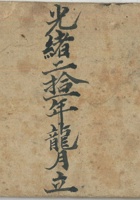 光緒二拾年龍月立